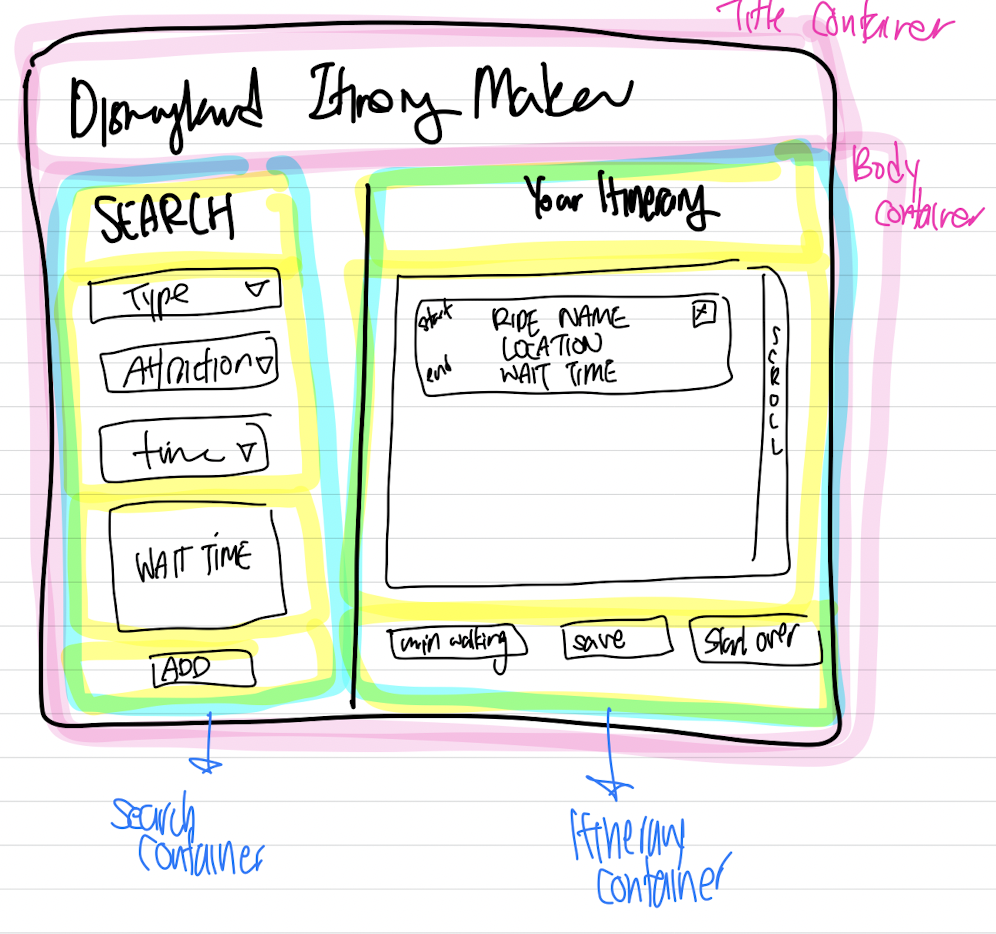 Title Container
Disneyland Itinrary Maker
Body
container
SEARCH
Your Itinerary
Type
Attraction
time
WAIT TIME
ADD
start
RIDE NAME
x
LOCATION
end
WAIT TIME
SCROLL
min walking
save
start over
Search
Container
Itinerary
Container